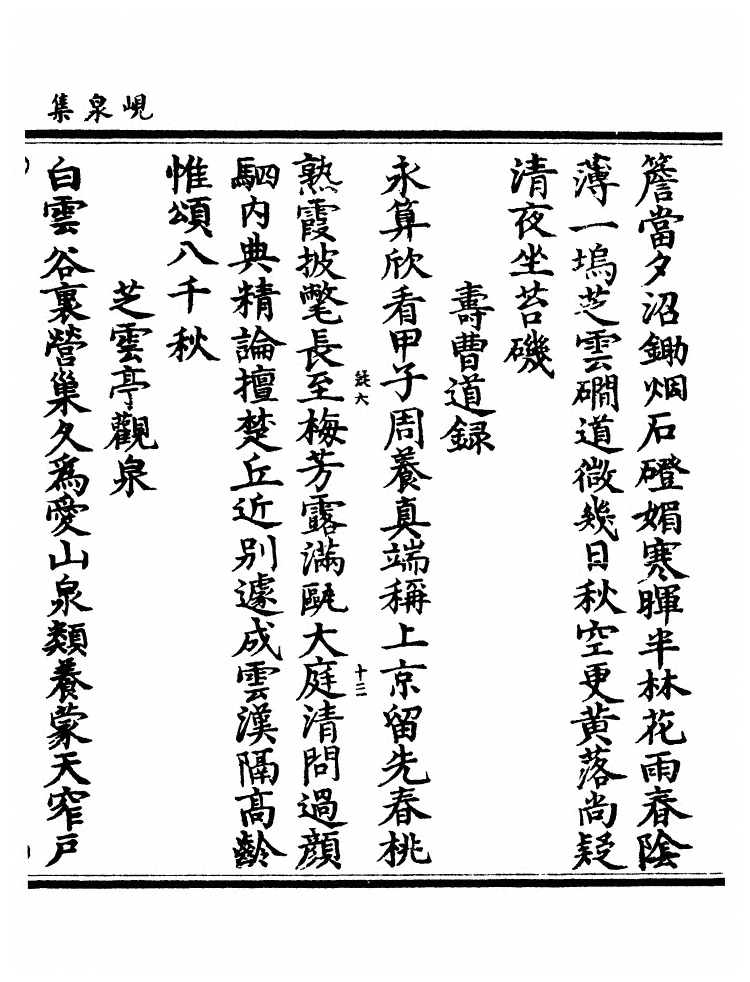 峴泉集
簷當夕沼鋤烟石磴媚寒暉半林花雨春陰
薄一塢芝雲磵道微幾日秋空更黃落尚疑
清夜坐苔磯
壽曹道録
永算欣看甲子周養真端稱上京留先春桃
六
十三
熟霞披氅長至梅芳露滿甌大庭清問過顏
駟内典精論擅楚丘近別遽成雲漢隔高齡
惟頌八千秋
芝雲亭觀泉
白雲谷裏營巢久爲愛山泉類養蒙天窄戶